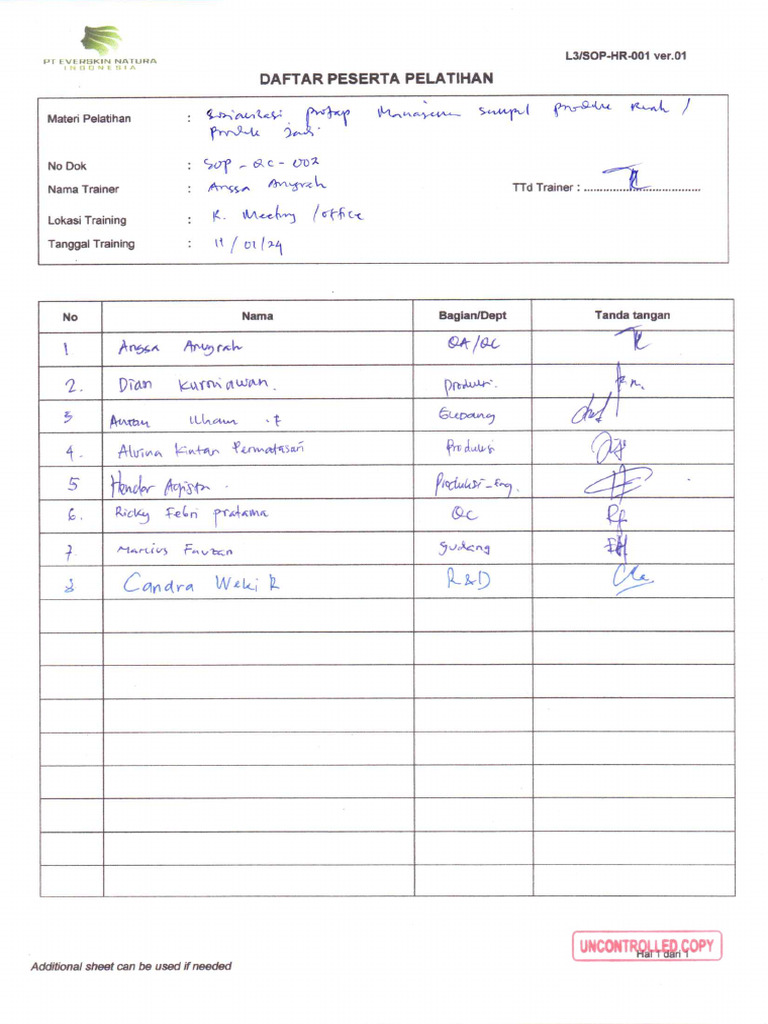 PT EVERSKIN NATURA
INDONESIA
L3/SOP-HR-001 ver.01
DAFTAR PESERTA PELATIHAN
Materi Pelatihan : Sosialisasi protap Manajemen sampel produk Ruah /
Produk Jadi
No Dok : SOP - QC - 002
Nama Trainer : Angga Anugrah TTd Trainer : ...................................
Lokasi Training : R. Meeting / office
Tanggal Training : 11/01/24
No Nama Bagian/Dept Tanda tangan
1 Angga Anugrah QA/QC
2. Dian Kurniawan. Produksi.
3 Ilham .F Gudang
4. Alvina Kintan Permatasari Produksi
5 Hender Agista. Produksi_Eng.
6. Ricky Febri pratama QC
7 Marcius Fauzan gudang
8 Candra Weki R R&D
UNCONTROLLED COPY
Hal 1 dari 1
Additional sheet can be used if needed